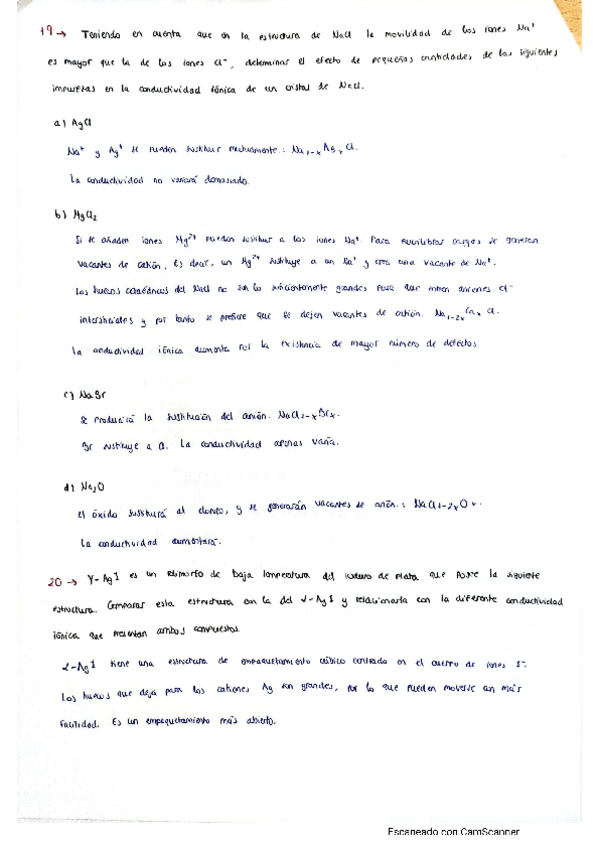 19 → Teniendo en cuenta que en la estructura de NaCl la movilidad de los iones Na⁺
es mayor que la de los iones Cl⁻, determinar el efecto de pequeñas cantidades de las siguientes
impurezas en la conductividad iónica de un cristal de NaCl.
a) AgCl
Na⁺ y Ag⁺ se pueden sustituir mutuamente: Na₁₋ₓAgₓCl.
La conductividad no variará demasiado.
b) MgCl₂
Si se añaden iones Mg²⁺ pueden sustituir a los iones Na⁺. Para equilibrar cargas se generan
vacantes de catión. Es decir, un Mg²⁺ sustituye a un Na⁺ y crea una vacante de Na⁺.
Los huecos tetraédricos del NaCl no son lo suficientemente grandes para que entren aniones Cl⁻
intersticiales y por tanto se prefiere que se dejen vacantes de catión. Na₁₋₂ₓCaₓ Cl.
La conductividad iónica aumenta por la existencia de mayor número de defectos.
c) NaBr
Se producirá la sustitución del anión. NaCl₁₋ₓBrₓ.
Br sustituye a Cl. La conductividad apenas varía.
d) Na₂O
El óxido sustituirá al cloruro, y se generarán vacantes de anión: NaCl₁₋₂ₓOₓ.
La conductividad aumentará.
20 → γ-AgI es un polimorfo de baja temperatura del ioduro de plata que posee la siguiente
estructura. Comparar esta estructura con la del α-AgI y relacionarla con la diferente conductividad
iónica que presentan ambos compuestos
α-AgI tiene una estructura de empaquetamiento cúbico centrado en el cuerpo de iones I⁻.
Los huecos que deja para los cationes Ag son grandes, por lo que pueden moverse con más
facilidad. Es un empaquetamiento más abierto.
Escaneado con CamScanner